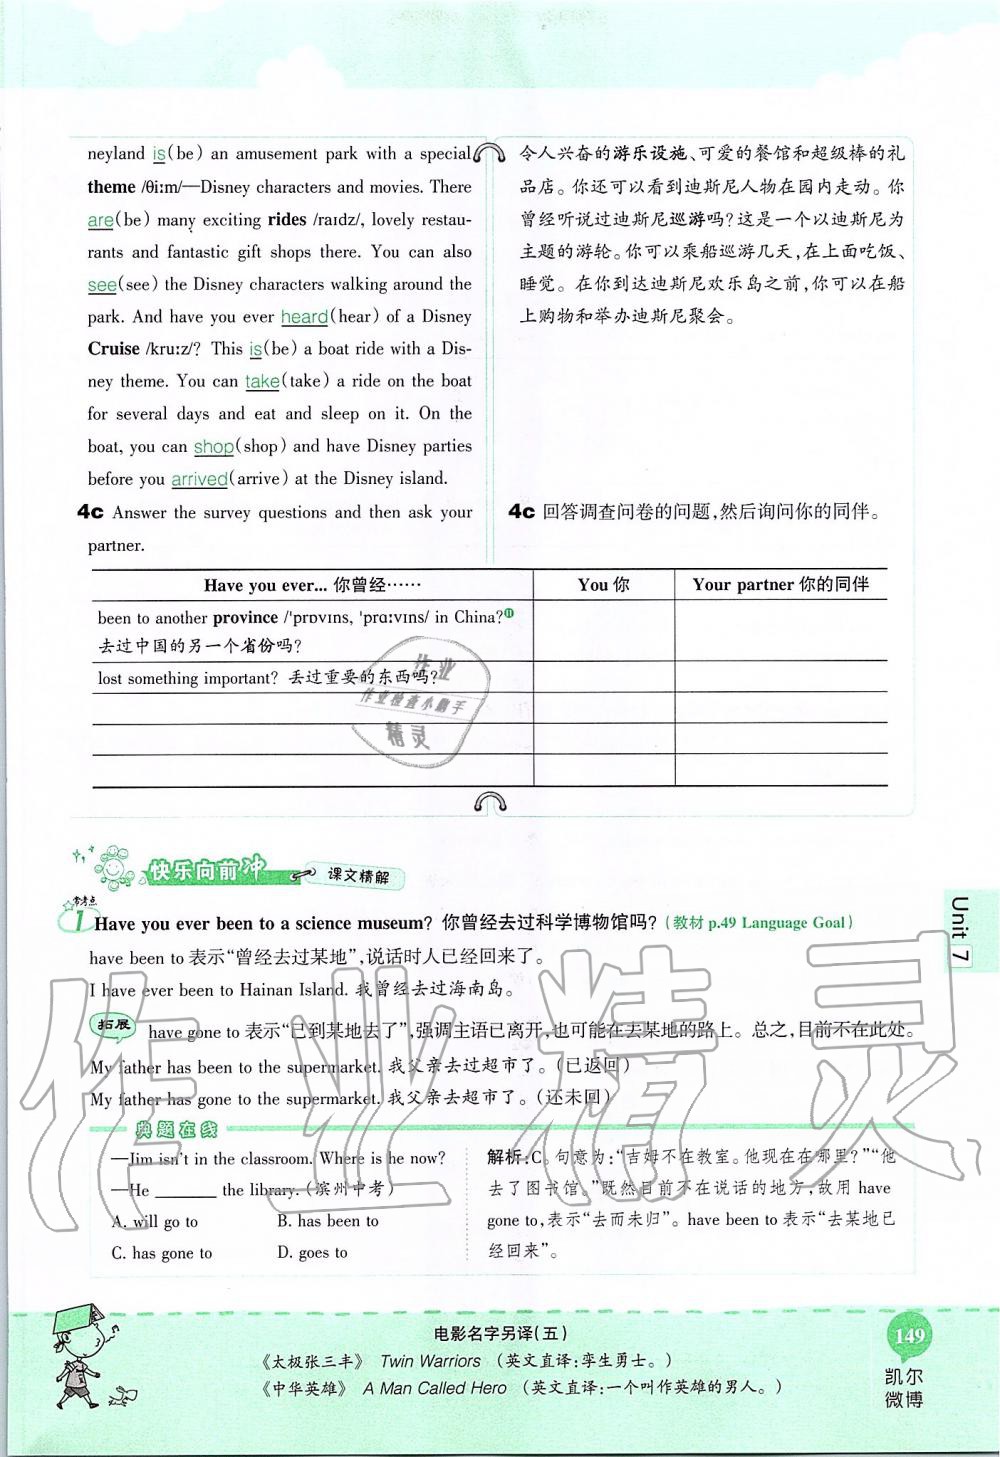 neyland is(be) an amusement park with a special
theme /θiːm/—Disney characters and movies. There
are(be) many exciting rides /raɪdz/, lovely restau-
rants and fantastic gift shops there. You can also
see(see) the Disney characters walking around the
park. And have you ever heard(hear) of a Disney
Cruise /kruːz/? This is(be) a boat ride with a Dis-
ney theme. You can take(take) a ride on the boat
for several days and eat and sleep on it. On the
boat, you can shop(shop) and have Disney parties
before you arrived(arrive) at the Disney island.
令人兴奋的游乐设施、可爱的餐馆和超级棒的礼
品店。你还可以看到迪斯尼人物在园内走动。你
曾经听说过迪斯尼巡游吗?这是一个以迪斯尼为
主题的游轮。你可以乘船巡游几天,在上面吃饭、
睡觉。在你到达迪斯尼欢乐岛之前,你可以在船
上购物和举办迪斯尼聚会。
4c Answer the survey questions and then ask your
partner.
4c 回答调查问卷的问题,然后询问你的同伴。
Have you ever... 你曾经…… You 你 Your partner 你的同伴
been to another province /ˈprɒvɪns, ˈprɑːvɪns/ in China?⑪
去过中国的另一个省份吗?
lost something important? 丢过重要的东西吗?
作业
作业检查小帮手
精灵
快乐向前冲 课文精解
常考点
1 Have you ever been to a science museum? 你曾经去过科学博物馆吗?(教材 p.49 Language Goal)
have been to 表示“曾经去过某地”,说话时人已经回来了。
I have ever been to Hainan Island. 我曾经去过海南岛。
拓展 have gone to 表示“已到某地去了”,强调主语已离开,也可能在去某地的路上。总之,目前不在此处。
My father has been to the supermarket. 我父亲去过超市了。(已返回)
My father has gone to the supermarket. 我父亲去超市了。(还未回)
典题在线
—Jim isn't in the classroom. Where is he now?
—He ______ the library. (滨州中考)
A. will go to B. has been to
C. has gone to D. goes to
解析:C。句意为:“吉姆不在教室。他现在在哪里?”“他
去了图书馆。”既然目前不在说话的地方,故用 have
gone to,表示“去而未归”。have been to 表示“去某地已
经回来”。
Unit 7
作业精灵
电影名字另译(五)
《太极张三丰》 Twin Warriors (英文直译:孪生勇士。)
《中华英雄》 A Man Called Hero (英文直译:一个叫作英雄的男人。)
149
凯尔
微博